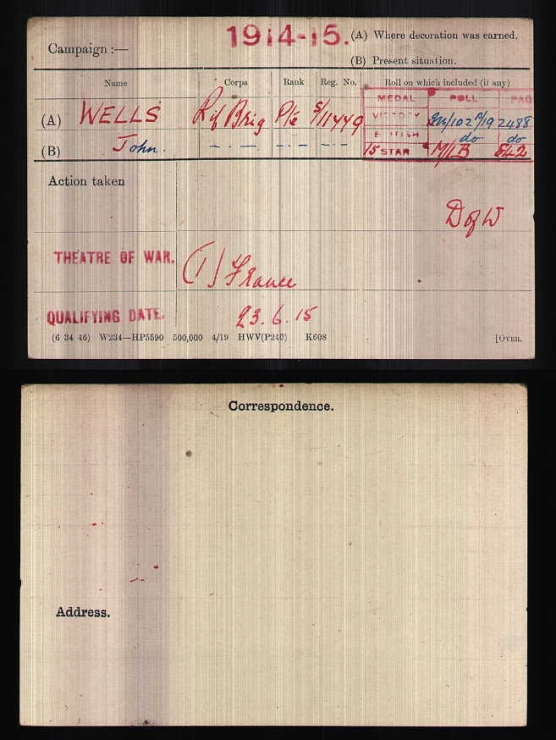 Campaign :— 1914-15. (A) Where decoration was earned.
(B) Present situation.
Name Corps Rank Reg. No. Roll on which included (if any)
MEDAL ROLL PAG
(A) WELLS Rif Brig Pte S/11449 VICTORY 2488
(B) John. BRITISH do do
15 STAR 542
Action taken
D of W
THEATRE OF WAR. (1) France
QUALIFYING DATE. 23.6.15
(6 34 46) W234—HP5590 500,000 4/19 HWV(P240) K608 [OVER.
Correspondence.
Address.